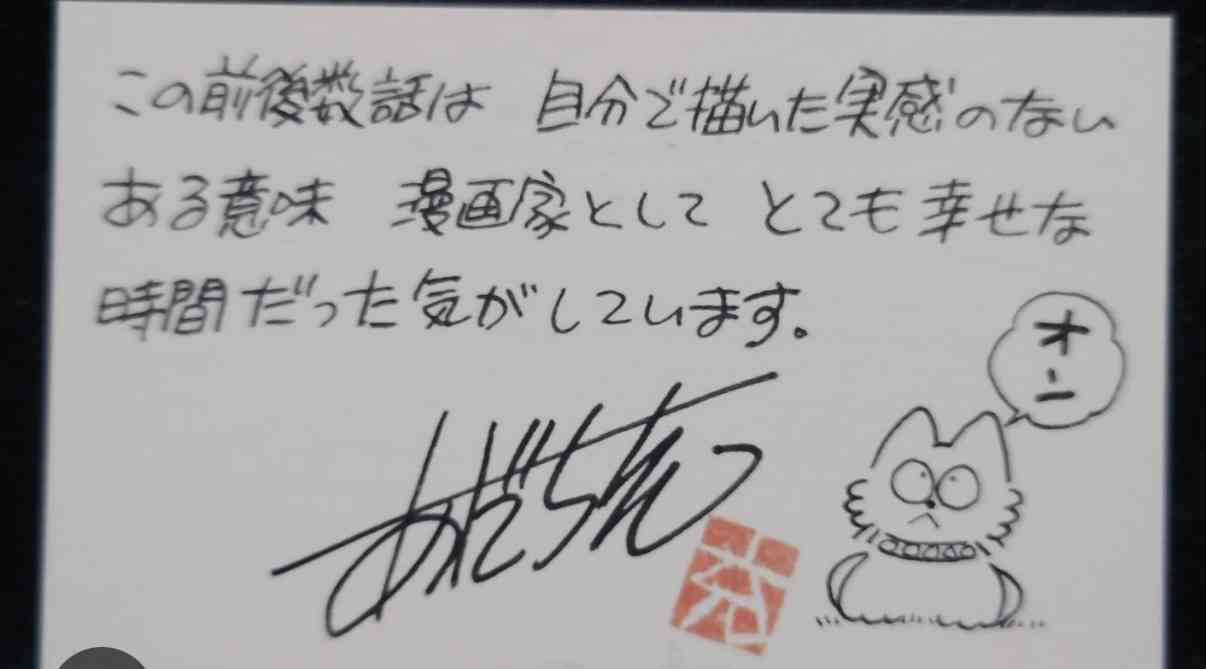 この前後数話は 自分で描いた実感のない
ある意味 漫画家として とても幸せな
時間だった気がしています。
オン
あだち充